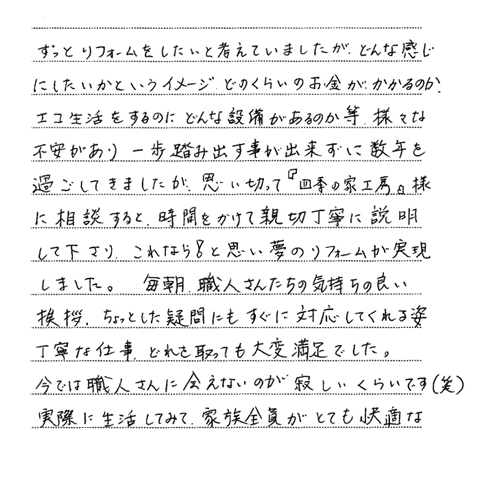 ずっとリフォームをしたいと考えていましたが、どんな感じ
にしたいかというイメージ、どのくらいのお金がかかるのか?
エコ生活をするのにどんな設備があるのか等、様々な
不安があり 一歩踏み出す事が出来ずに数年を
過ごしてきましたが、思い切って『四季の家工房』様
に相談すると、時間をかけて親切丁寧に説明
して下さり、これなら!と思い夢のリフォームが実現
しました。 毎朝、職人さんたちの気持ちの良い
挨拶、ちょっとした疑問にもすぐに対応してくれる姿
丁寧な仕事、どれを取っても大変満足でした。
今では職人さんに会えないのが寂しいくらいです(笑)
実際に生活してみて、家族全員がとても快適な